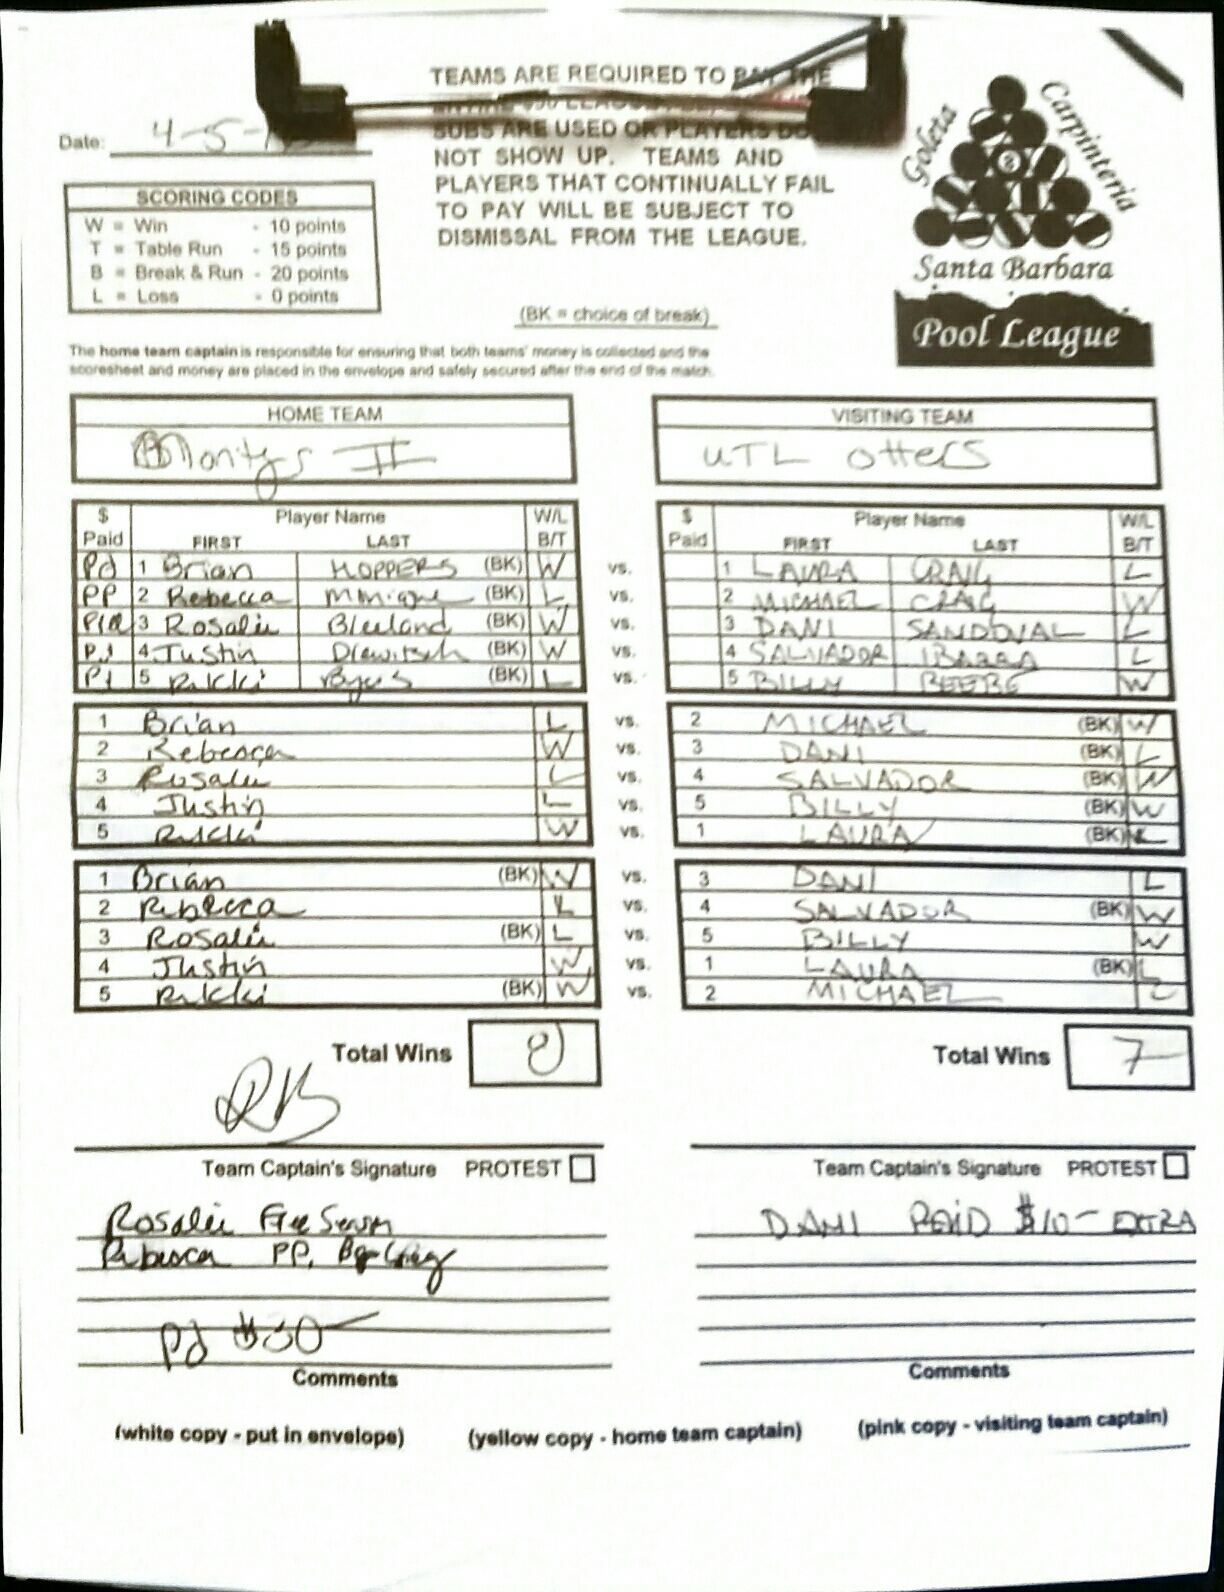 TEAMS ARE REQUIRED TO PAY THE
SUBS ARE USED OR PLAYERS DO
NOT SHOW UP. TEAMS AND
PLAYERS THAT CONTINUALLY FAIL
TO PAY WILL BE SUBJECT TO
DISMISSAL FROM THE LEAGUE.
Date: 4-5-
SCORING CODES
W = Win - 10 points
T = Table Run - 15 points
B = Break & Run - 20 points
L = Loss - 0 points
(BK = choice of break)
Goleta
Carpinteria
Santa Barbara
Pool League
The home team captain is responsible for ensuring that both teams' money is collected and the
scoresheet and money are placed in the envelope and safely secured after the end of the match.
HOME TEAM VISITING TEAM
Montys II UTL Otters
$ Player Name W/L $ Player Name W/L
Paid FIRST LAST B/T Paid FIRST LAST B/T
Pd 1 Brian HOPPERS (BK) W vs. 1 LAURA CRAIG L
PP 2 Rebecca (BK) L vs. 2 MICHAEL CRAIG W
3 Rosalie (BK) W vs. 3 DANI SANDOVAL L
Pd 4 Justin (BK) W vs. 4 SALVADOR IBARRA L
5 Rikki (BK) L vs. 5 BILLY BEEBE W
1 Brian L vs. 2 MICHAEL (BK) W
2 Rebecca W vs. 3 DANI (BK) L
3 Rosalie L vs. 4 SALVADOR (BK) W
4 Justin L vs. 5 BILLY (BK) W
5 Rikki W vs. 1 LAURA (BK) L
1 Brian (BK) W vs. 3 DANI L
2 Rebecca L vs. 4 SALVADOR (BK) W
3 Rosalie (BK) L vs. 5 BILLY W
4 Justin W vs. 1 LAURA (BK) L
5 Rikki (BK) W vs. 2 MICHAEL L
Total Wins 8 Total Wins 7
RB
Team Captain's Signature PROTEST Team Captain's Signature PROTEST
Rosalie Free DANI PAID $10- EXTRA
Rebecca PP,
Pd $30-
Comments Comments
(white copy - put in envelope) (yellow copy - home team captain) (pink copy - visiting team captain)